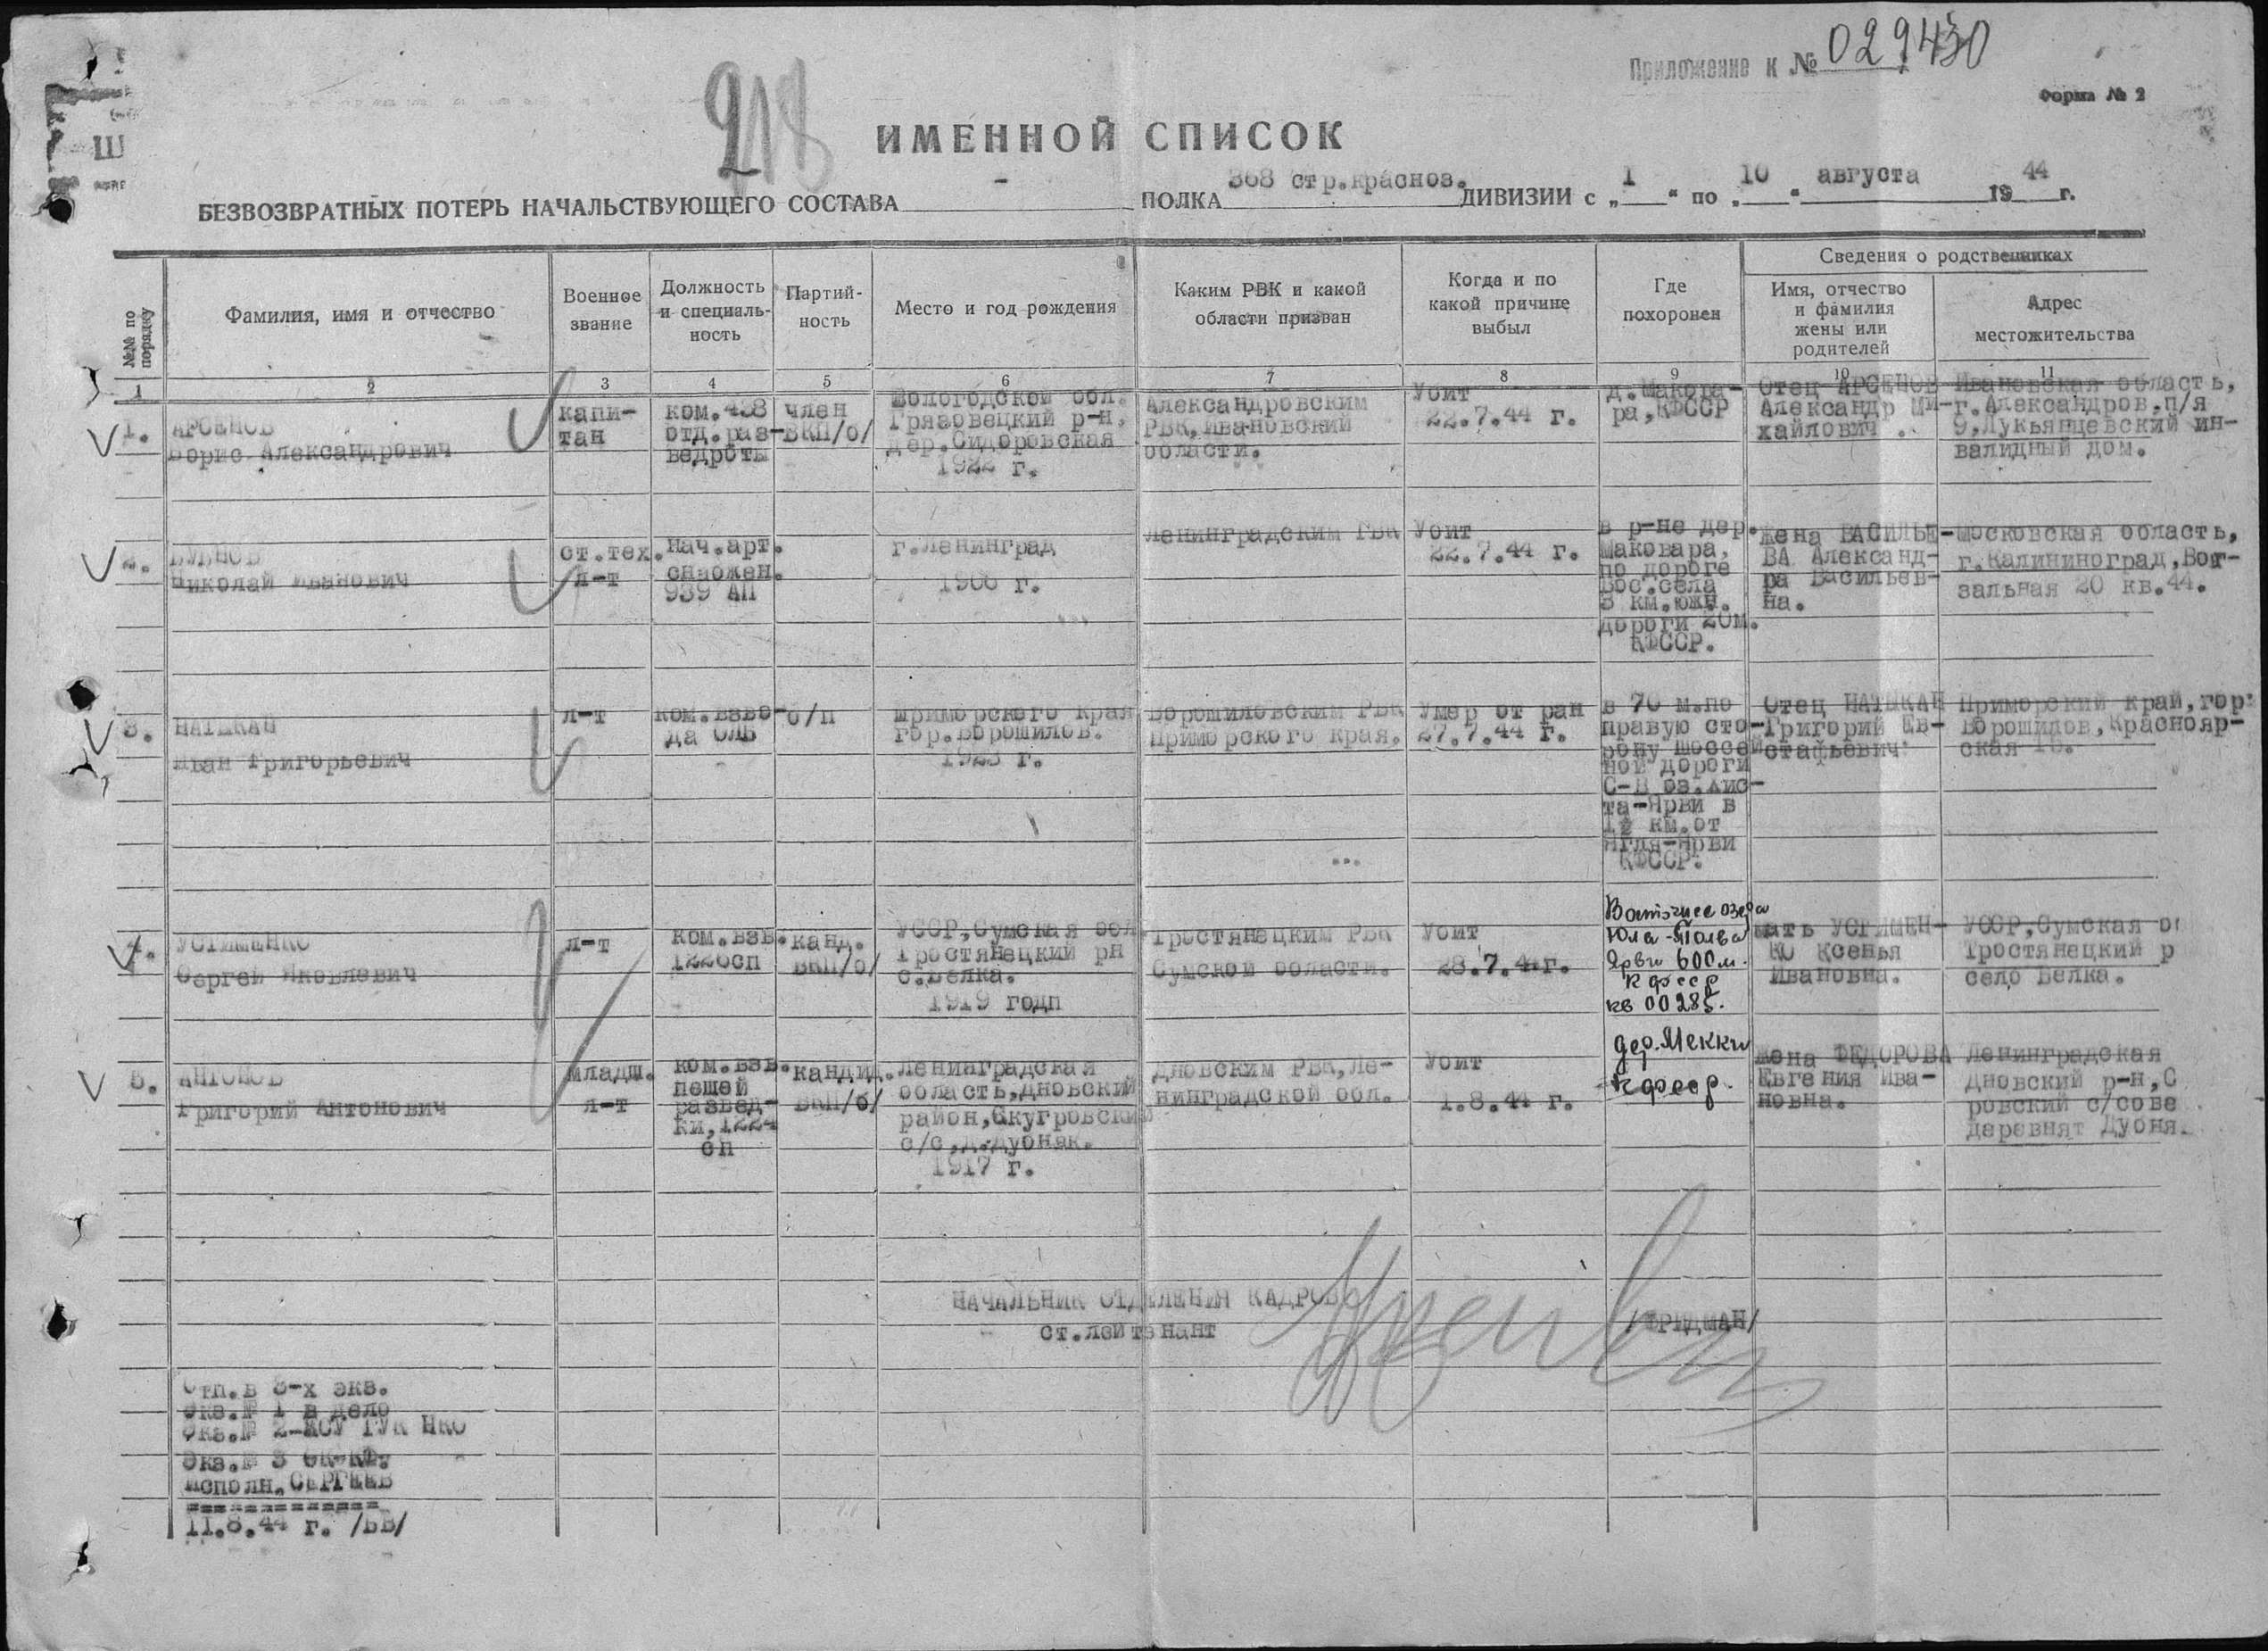 Приложение к № 029430
Форма № 2
218
ИМЕННОЙ СПИСОК
БЕЗВОЗВРАТНЫХ ПОТЕРЬ НАЧАЛЬСТВУЮЩЕГО СОСТАВА - ПОЛКА 368 стр.красноз. ДИВИЗИИ с „1“ по „10“ августа 1944 г.
№№ по порядку
Фамилия, имя и отчество
Военное звание
Должность и специаль-
ность
Партий-
ность
Место и год рождения
Каким РВК и какой
области призван
Когда и по
какой причине
выбыл
Где
похоронен
Сведения о родственниках
Имя, отчество
и фамилия
жены или
родителей
Адрес
местожительства
1 2 3 4 5 6 7 8 9 10 11
1.
АРСЕНОВ
Борис Александрович
капи-
тан
ком.438
отд.раз-
ведроты
член
ВКП/б/
Вологодской обл.
Грязовецкий р-н,
дер.Сидоровская
1922 г.
Александровским
РВК,Ивановский
области.
Убит
22.7.44 г.
д.Макова-
ра,КФССР
Отец АРСЕНОВ
Александр Ми-
хайлович.
Ивановская область,
г.Александров,п/я
9,Лукьянцевский ин-
валидный дом.
2.
БУБНОВ
Николай Иванович
ст.тех.
л-т
нач.арт.
снабжен.
939 АП
г.Ленинград
1906 г.
Ленинградским РВК
Убит
22.7.44 г.
в р-не дер.
Маковара,
по дороге
Вос.села
3 км.южн.
дороги 20м.
КФССР.
Жена ВАСИЛЬЕ-
ВА Александ-
ра Васильев-
на.
Московская область,
г.Калининоград,Вог-
зальная 20 кв.44.
3.
НАТЫКАН
Иван Григорьевич
л-т
ком.взво-
да ОЛБ
б/п
Приморского края
гор.Ворошилов.
1923 г.
Ворошиловским РВК
Приморского края.
Умер от ран
27.7.44 г.
в 70 м.по
правую сто-
рону шоссей
ной дороги
С-В оз.Лис-
та-Ярви в
1½ км.от
Нгля-Ярви
КФССР.
Отец НАТЫКАН
Григорий Ев-
стафьевич.
Приморский край,гор.
Ворошилов,Краснояр-
ская
4.
УСТИМЕНКО
Сергей Яковлевич
л-т
ком.взв.
1226сп
канд.
ВКП/б/
УССР,Сумская обл.
Тростянецкий рн
с.Белка.
1919 годп
Тростянецким РВК
Сумской области.
Убит
28.7.44г.
Восточнее озера
Юла-Толва
Ярви 600м.
К ФССР
кв 00285.
мать УСТИМЕН-
КО Ксенья
Ивановна.
УССР,Сумская о
Тростянецкий р
село Белка.
5.
АНТОНОВ
Григорий Антонович
младш.
л-т
ком.взв.
пешей
развед-
ки,1224
сп
кандид.
ВКП/б/
Ленинградская
область,Дновский
район,Скугровский
с/с,д.Дубняк.
1917 г.
Дновским РВК,Ле-
нинградской обл.
Убит
1.8.44 г.
дер.Мекки
К фсср.
Жена ФЕДОРОВА
Евгения Ива-
новна.
Ленинградская
Дновский р-н,С
ровский с/сове
деревнят Дубня.
НАЧАЛЬНИК ОТДЕЛЕНИЯ КАДРОВ
ст.лейтенант
/ФРИДМАН/
Отп.в 3-х экз.
Экз.№ 1 в дело
Экз.№ 2-МСУ ГУК НКО
Экз.№ 3 ОК КФ.
Исполн.СЕРГЕЕВ
=============
11.8.44 г. /БВ/